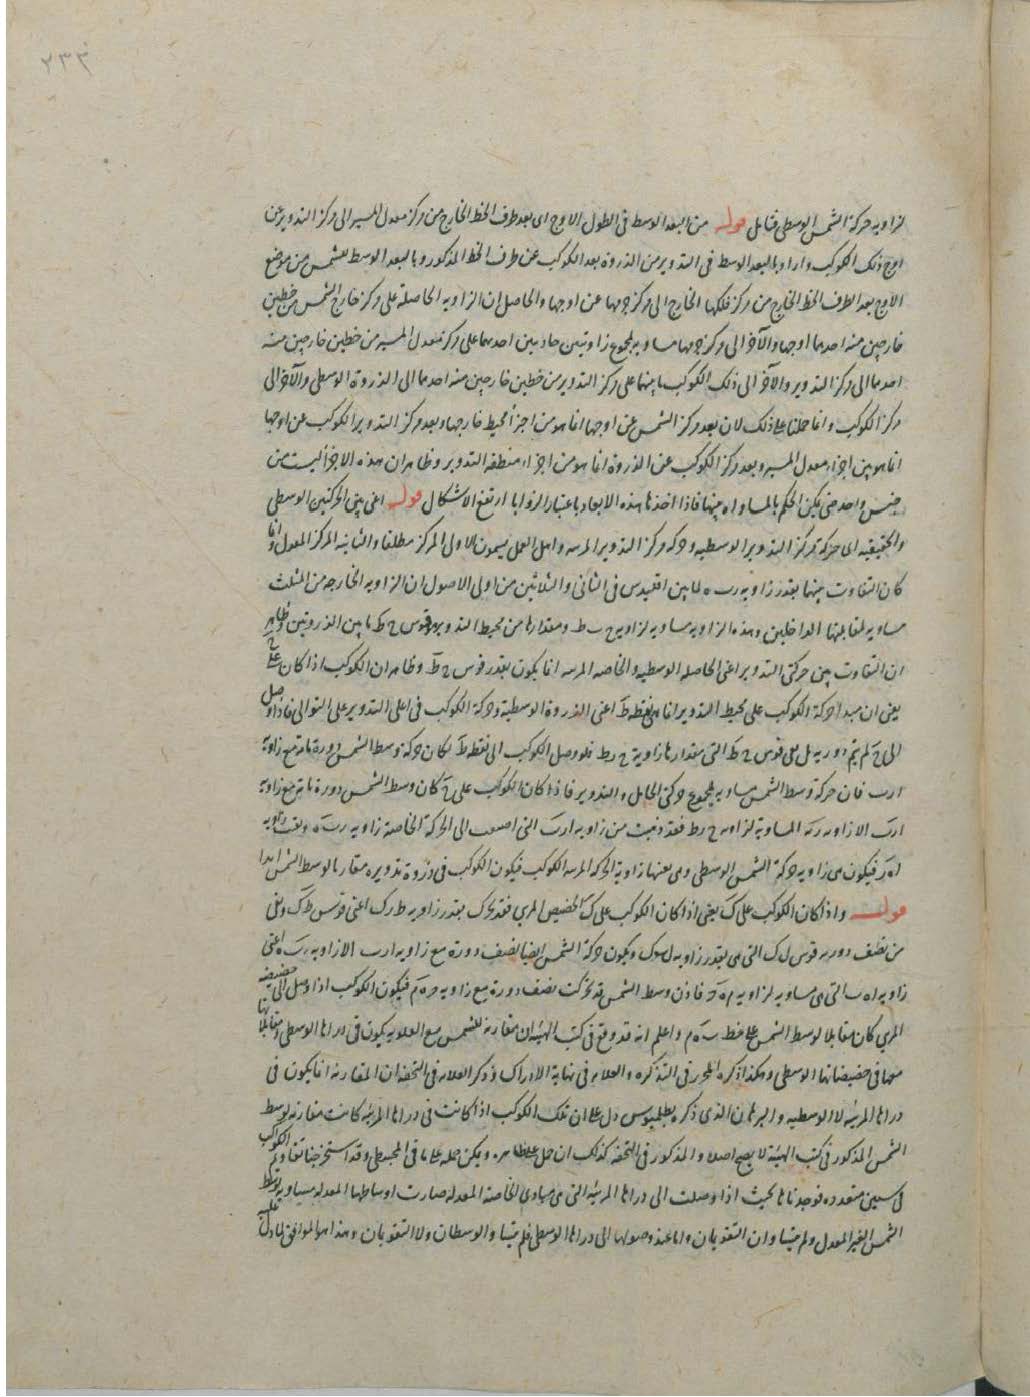 ٢٣٣
لزاويه حركة الشمس الوسطى فتامل قوله من البعد الوسط فى الطول الاوج اى بعد طرف الخط الخارج من مركز معدل المسير الى مركز التدوير عن
اوج ذلك الكوكب واراد بالبعد الوسط فى التدوير من الذروة بعد الكوكب عن طرف الخط المذكور وبالبعد الوسط للشمس من موضع
الاوج بعد طرف الخط الخارج من مركز فلكها الخارج الى مركز جرمها عن اوجها والحاصل ان الزاويه الحاصلة على مركز خارج الشمس من خطين
خارجين منه احدهما اوجها والآخر الى مركز جرمها مساويه لمجموع زاويتين حادثتين احديهما على مركز معدل المسير من خطين خارجين منه
احدهما الى مركز التدوير والآخر الى ذلك الكوكب ثانيتهما على مركز التدوير من خطين خارجين منه احدهما الى الذروة الوسطى والآخر الى
مركز الكوكب وانما حملنا على ذلك لان بعد مركز الشمس عن اوجها انما هو من اجزأ محيط خارجها وبعد مركز التدوير الكوكب عن اوجها
انما هو من اجزاء معدل المسير وبعد مركز الكوكب عن الذروة انما هو من اجزاء منطقه التدوير وظاهر ان هذه الاجزأ ليست من
جنس واحد حتى يمكن الحكم بالمساواه بينها فاذا اخذنا هذه الابعاد باعتبار الزوايا ارتفع الاشكال قوله اعنى بين الحركتين الوسطى
والحقيقيه اى حركة مركز التدوير الوسطيه وحركه مركز التدوير المرئيه واهل العمل يسمون الاولى المركز مطلقا والثانيه المركز المعدل وانما
كان التفاوت بينهما بقدر زاويه رب ه لما بين اقليدس فى الثانى والثلاثين من اولى الاصول ان الزاويه الخارجه من المثلث
مساويه لمقابلتيها الداخلتين وهذه الزاويه مساويه لزاويه ح ب ط ومقدارها من محيط التدوير وقوس ح ط ما بين الذروتين وظاهر
ان التفاوت بين حركتى التدوير اعنى الخاصه الوسطيه والخاصه المرئيه انما يكون بقدر قوس ح ط وظاهر ان الكوكب اذا كان على ح
يعنى ان مبدأ حركة الكوكب على محيط التدوير انما هى نقطه ط اعنى الذروة الوسطية وحركة الكوكب فى اعلى التدوير على التوالى فاذا وصل
الى ح لم يتم دوره بل بقى قوس ح ط التى مقدارها زاوية ح ر ط فلو وصل الكوكب الى نقطه ط لكان حركة وسط الشمس دورة تامة مع زاوية
ارب فان حركة وسط الشمس مساويه لمجموع حركتى الحامل والتدوير فاذا كان الكوكب على ح كان وسط الشمس دورة تامة مع زاويه
ارب الا زاويه المساوية لزاويه ح ر ط فقد ذهبت من زاويه ارب التى اضيفت الى الحركة الخاصة زاويه رب ه وبقيت زاويه
اه ب فيكون هى زاويه حركة الشمس الوسطى وهى بعينها زاوية الحركه المرئيه الكوكب فيكون الكوكب فى ذروة تدويره مقارنا لوسط الشمس ابدا
قوله واذا كان الكوكب على ك يعنى اذا كان الكوكب على ك الحضيض المرئى فقد تحرك بقدر زاويه ط ر ك اعنى قوس ط ك وبقى
من نصف دوره قوس ل ك التى هى بقدر زاويه ل ب ك ويكون حركة الشمس ايضا نصف دورة مع زاويه ارب الا زاويه رب ه اعنى
زاويه اه ب التى هى مساويه لزاويه م ه ج فاذن وسط الشمس قد تحركت نصف دورة مع زاويه ج ه م فيكون الكوكب اذا وصل الى حضيضه
المرئى كان مقابلا لوسط الشمس على خط ب ه م واعلم انه قد وقع فى كتب الهيئه ان مقارنة للشمس مع العلويه يكون فى ذراها الوسطى ومقابلاتها
معها فى حضيضاتها الوسطى وهكذا ذكره المحرر فى التذكره والعلامه فى نهاية الادراك وذكر العلامه فى التحفه ان المقارنه انما يكون فى
ذراها المرئيه لا الوسطيه والبرهان الذى ذكره بطلميوس دل على ان تلك الكوكب اذا كانت فى ذراها المرئيه كانت مقارنه لوسط
الشمس المذكور فى كتب الهيئة لا يصح اصلا والمذكور فى التحفه كذلك ان حمل على ظاهره ويمكن حمله على ما فى المجسطى وقد استخرجنا تقاويم الكواكب
فى سنين متعدده فوجدناها بحيث اذا وصلت الى ذراها المرئيه التى هى مبادى الخاصة المعدله صارت اوساطها المعدله مساويه لوسط
الشمس الغير المعدل ولم يتساو ان التقويمان واما عند وصولها الى ذراها الوسطى فلم يتساو الوسطان ولا التقويمان وهذا هو الموافق لما دل عليه